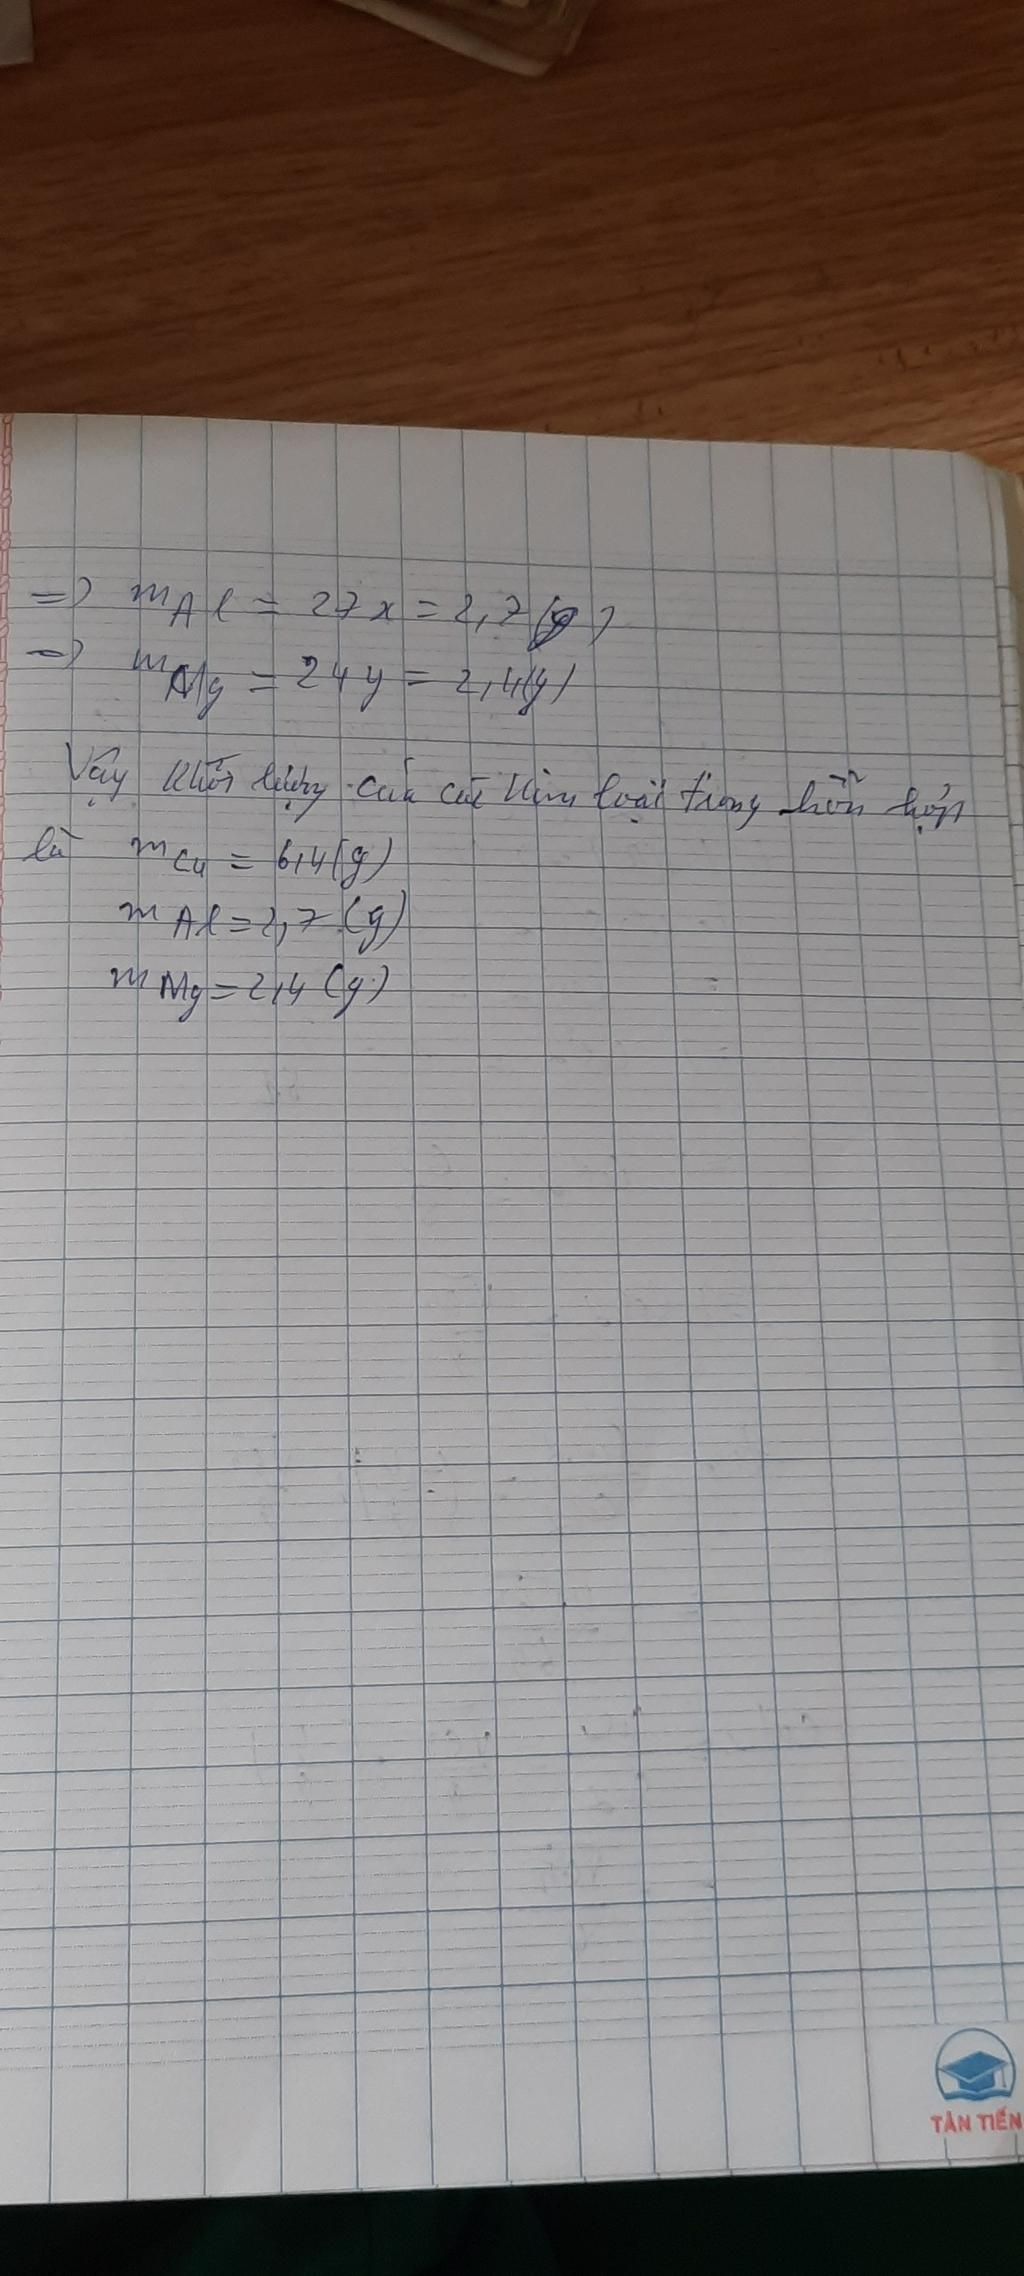 => mAl = 27x = 2,7(g)
=> mMg = 24y = 2,4(g)
Vậy khối lượng của các kim loại trong hỗn hợp
là mCu = 6,4(g)
mAl = 2,7 (g)
mMg = 2,4 (g)
TÂN TIẾN